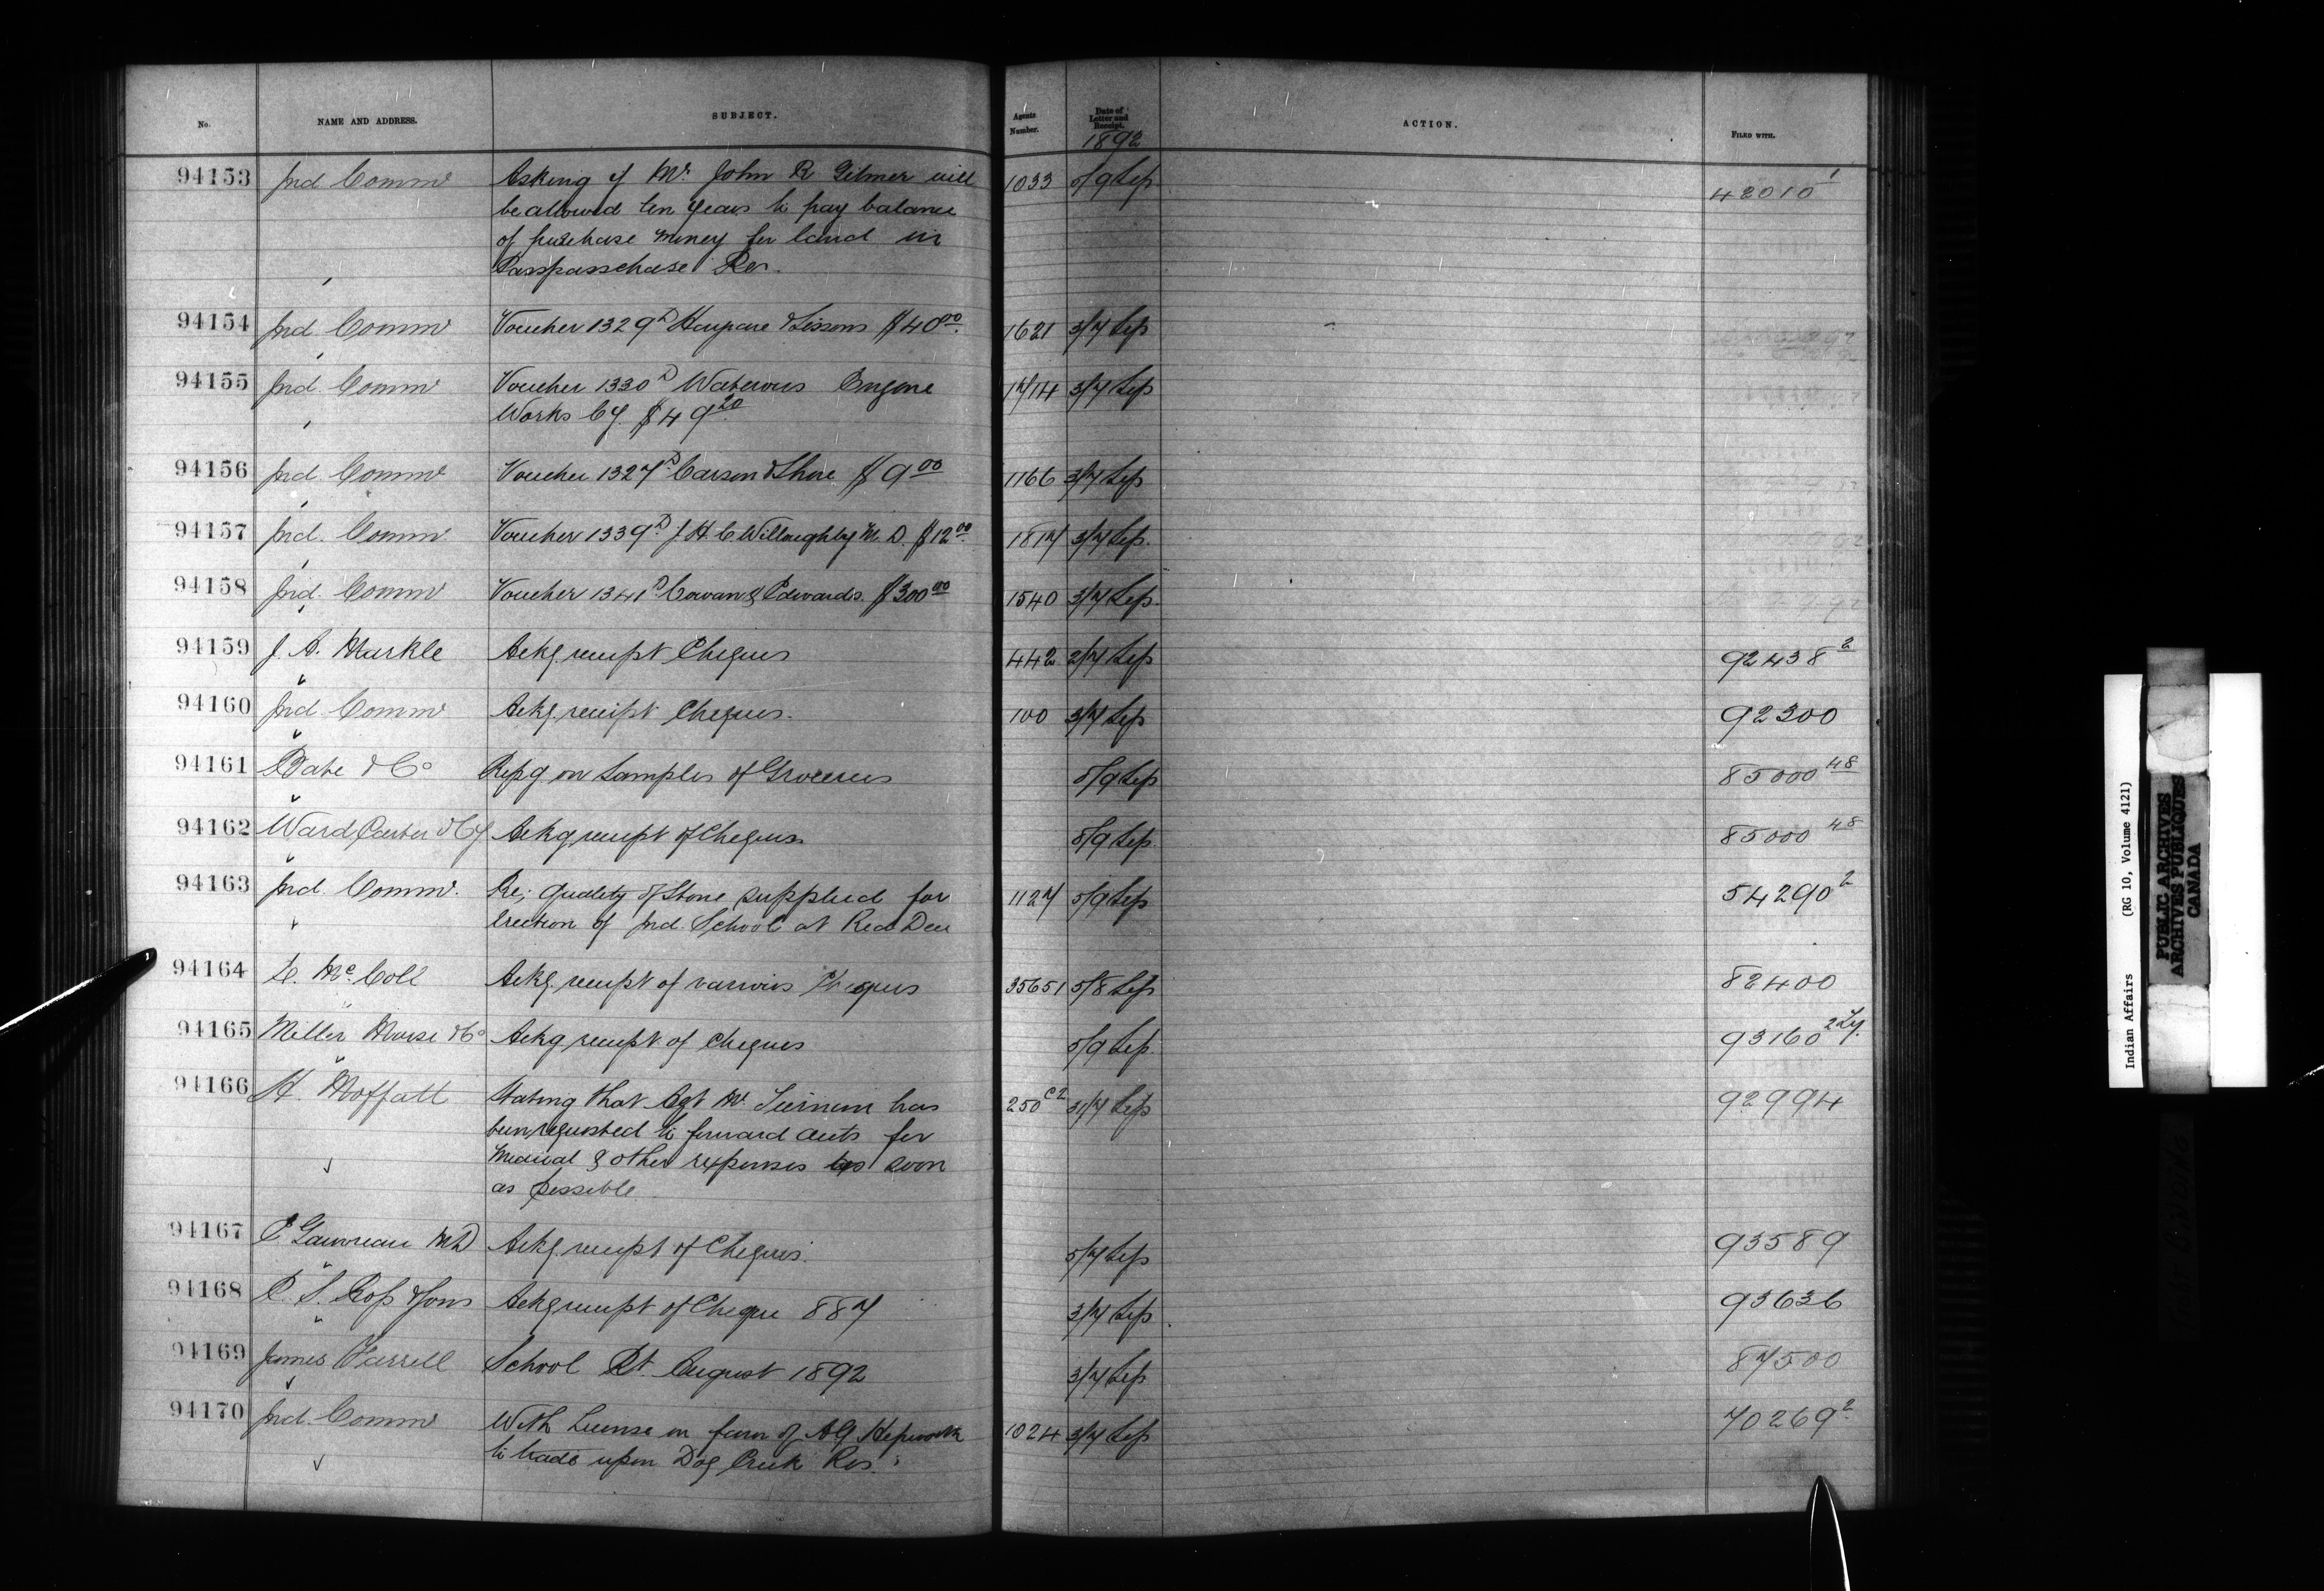 No. NAME AND ADDRESS. SUBJECT. Agents Number. Date of Letter and Receipt. ACTION. FILED WITH.
1892
94153 Ind. Commr Asking if Mr. John R Gilmer will 1033 5/9 Sep 42010 1
be allowed ten years to pay balance
of purchase money for land in
Passpasschase Res.
94154 Ind. Commr Voucher 1329 D & Sissons $40.00 1621 3/7 Sep
94155 Ind. Commr Voucher 1330 D Waterous Engine 1714 3/7 Sep
Works Cy. $49.20
94156 Ind. Commr Voucher 1327 D Carson & Shore $9.00 1166 3/7 Sep
94157 Ind. Commr Voucher 1339 D J. H. C. Willoughby M. D. $12.00 1817 3/7 Sep.
94158 Ind. Commr Voucher 1341 D Cowan & Edwards. $300.00 1540 3/7 Sep.
94159 J. A. Markle Ackg. receipt Cheques 442 2/7 Sep 92438 2
94160 Ind. Commr Ackg. receipt Cheques. 100 3/7 Sep 92300
94161 Bate & Co Repg on Samples of Groceries 5/9 Sep 85000 48
94162 Ward Carter & Cy Ackg receipt of Cheques 8/9 Sep 85000 48
94163 Ind. Commr. Re; quality of Stone supplied for 1127 5/9 Sep 54290 2
Erection of Ind. School at Red Deer
94164 E. McColl Ackg. receipt of various Cheques 35651 5/8 Sep 82400
94165 Miller Morse & Co Ackg receipt of Cheques 5/9 Sep. 93160
94166 H. Moffatt Stating that Agt Mr. has 250 C2 31/7 Sep 92994
been requested to forward accts for
medical & other expenses as soon
as possible.
94167 E Gauvreau MD Ackg. receipt of Cheques. 5/7 Sep 93589
94168 P. S. Ross & Sons Ackg receipt of Cheque 887 3/7 Sep. 93636
94169 James Farrell School Rt. August 1892 3/7 Sep 87500
94170 Ind. Commr With License in favor of A G Hepworth 1024 3/7 Sep 70269 2
to trade upon Dog Creek Res.
Indian Affairs (RG 10, Volume 4121)
PUBLIC ARCHIVES
ARCHIVES PUBLIQUES
CANADA